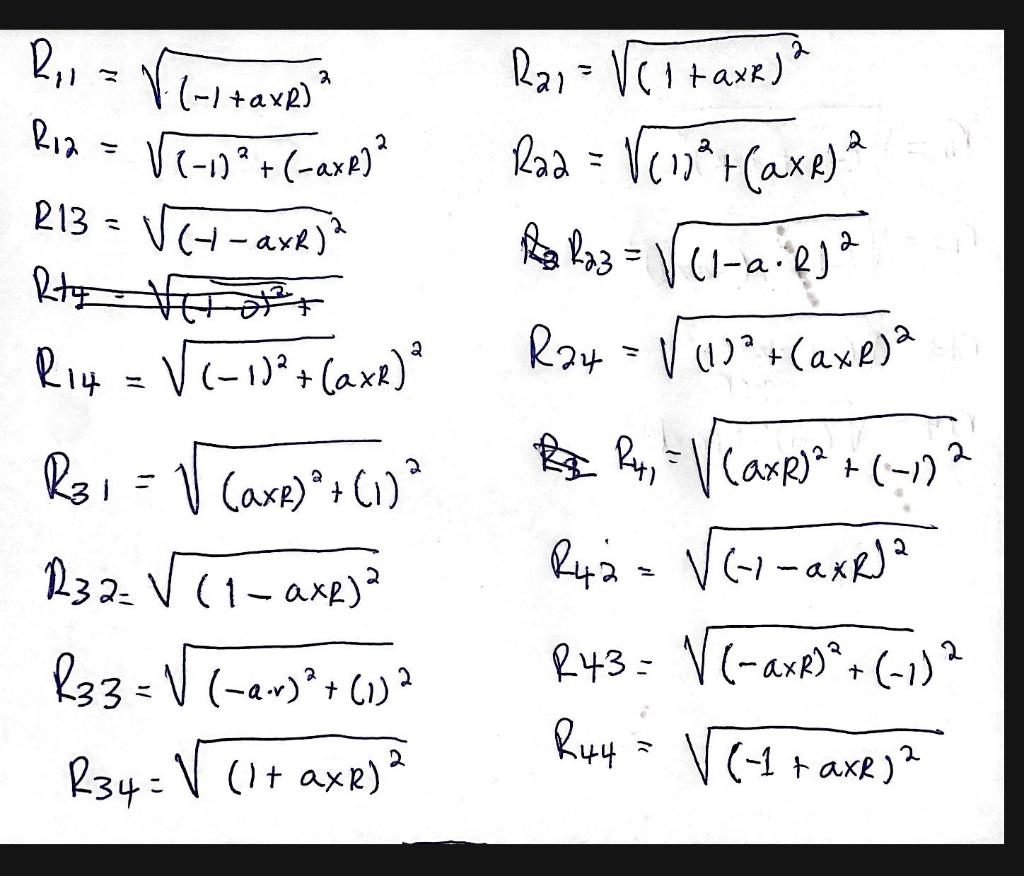 R11 = √(-1+axR)²
R12 = √(-1)² + (-axR)²
R13 = √(-1 - axR)²
R14 = √(-1-0)² +
R14 = √(-1)² + (axR)²
R31 = √(axR)² + (1)²
R32 = √(1 - axR)²
R33 = √(-a·r)² + (1)²
R34 = √(1 + axR)²
R21 = √(1 + axR)²
R22 = √(1)² + (axR)²
R23 = √(1-a·R)²
R24 = √(1)² + (axR)²
R41 = √(axR)² + (-1)²
R42 = √(-1 - axR)²
R43 = √(-axR)² + (-1)²
R44 = √(-1 + axR)²